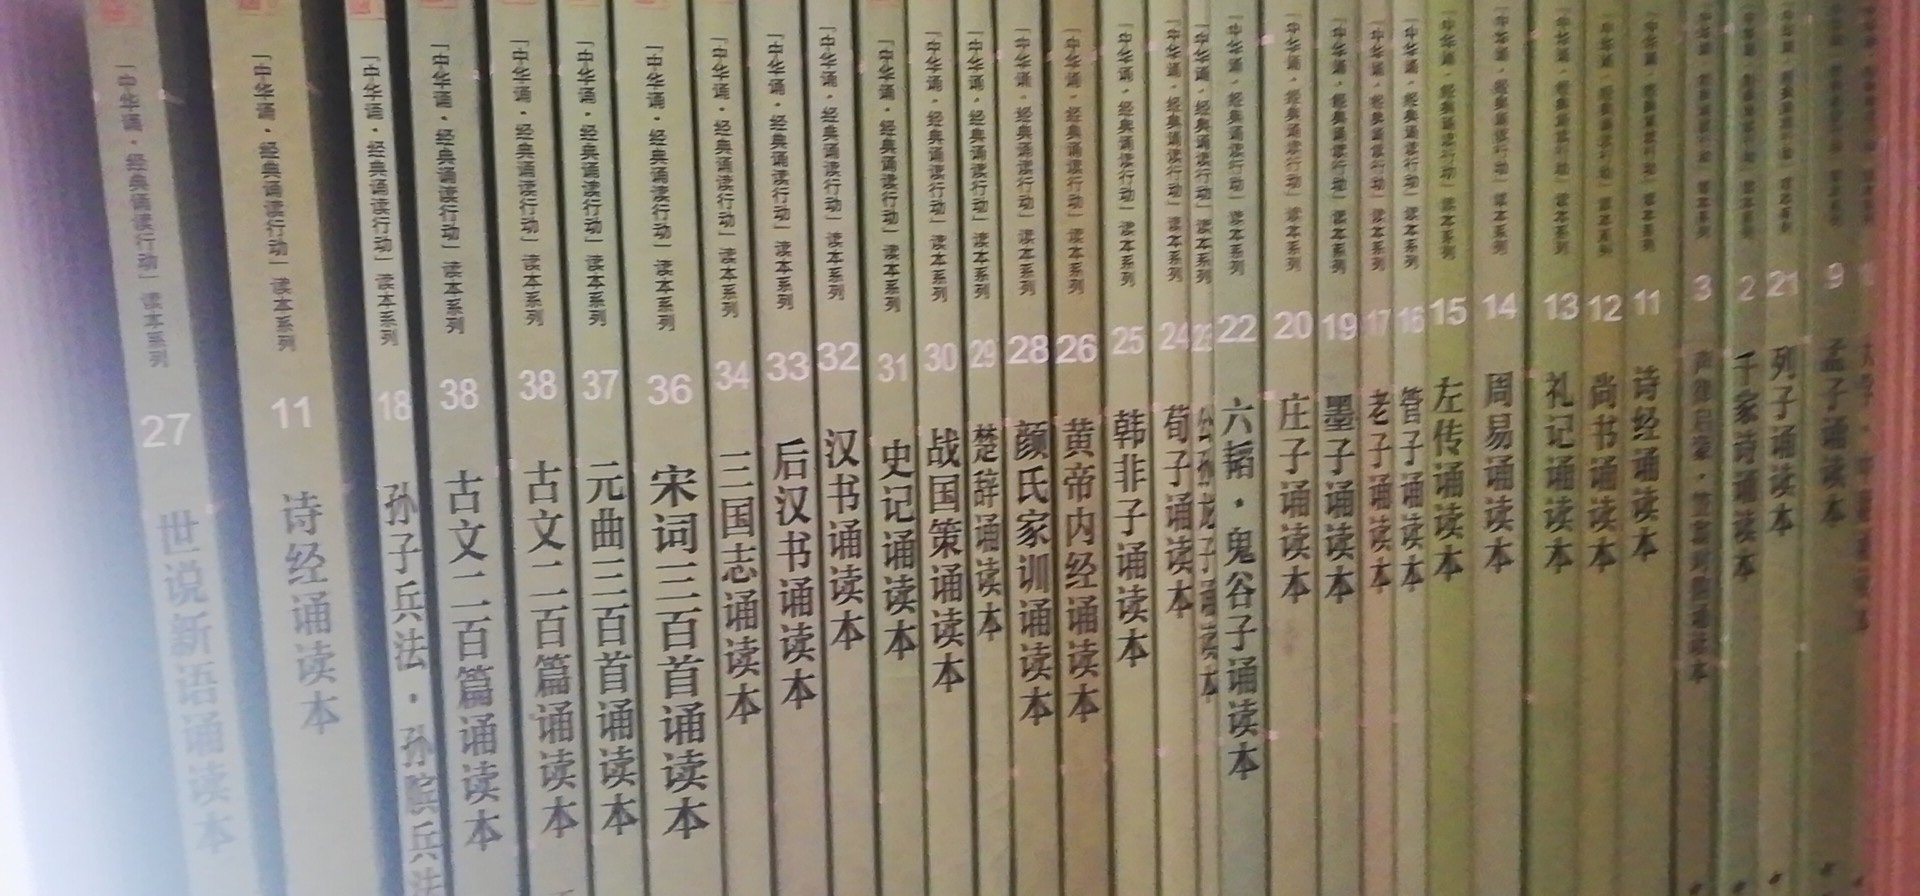 「中华诵·经典诵读行动」读本系列
27
世说新语诵读本
「中华诵·经典诵读行动」读本系列
11
诗经诵读本
「中华诵·经典诵读行动」读本系列
18
孙子兵法·孙膑兵法
「中华诵·经典诵读行动」读本系列
38
古文二百篇诵读本
「中华诵·经典诵读行动」读本系列
38
古文二百篇诵读本
「中华诵·经典诵读行动」读本系列
37
元曲三百首诵读本
「中华诵·经典诵读行动」读本系列
36
宋词三百首诵读本
「中华诵·经典诵读行动」读本系列
34
三国志诵读本
「中华诵·经典诵读行动」读本系列
33
后汉书诵读本
「中华诵·经典诵读行动」读本系列
32
汉书诵读本
「中华诵·经典诵读行动」读本系列
31
史记诵读本
「中华诵·经典诵读行动」读本系列
30
战国策诵读本
「中华诵·经典诵读行动」读本系列
29
楚辞诵读本
「中华诵·经典诵读行动」读本系列
28
颜氏家训诵读本
「中华诵·经典诵读行动」读本系列
26
黄帝内经诵读本
「中华诵·经典诵读行动」读本系列
25
韩非子诵读本
「中华诵·经典诵读行动」读本系列
24
荀子诵读本
「中华诵·经典诵读行动」读本系列
公孙龙子诵读本
「中华诵·经典诵读行动」读本系列
22
六韬·鬼谷子诵读本
「中华诵·经典诵读行动」读本系列
20
庄子诵读本
「中华诵·经典诵读行动」读本系列
19
墨子诵读本
「中华诵·经典诵读行动」读本系列
17
老子诵读本
「中华诵·经典诵读行动」读本系列
16
管子诵读本
「中华诵·经典诵读行动」读本系列
15
左传诵读本
「中华诵·经典诵读行动」读本系列
14
周易诵读本
「中华诵·经典诵读行动」读本系列
13
礼记诵读本
「中华诵·经典诵读行动」读本系列
12
尚书诵读本
「中华诵·经典诵读行动」读本系列
11
诗经诵读本
「中华诵·经典诵读行动」读本系列
3
声律启蒙·笠翁对韵诵读本
「中华诵·经典诵读行动」读本系列
2
千家诗诵读本
「中华诵·经典诵读行动」读本系列
21
列子诵读本
9
孟子诵读本